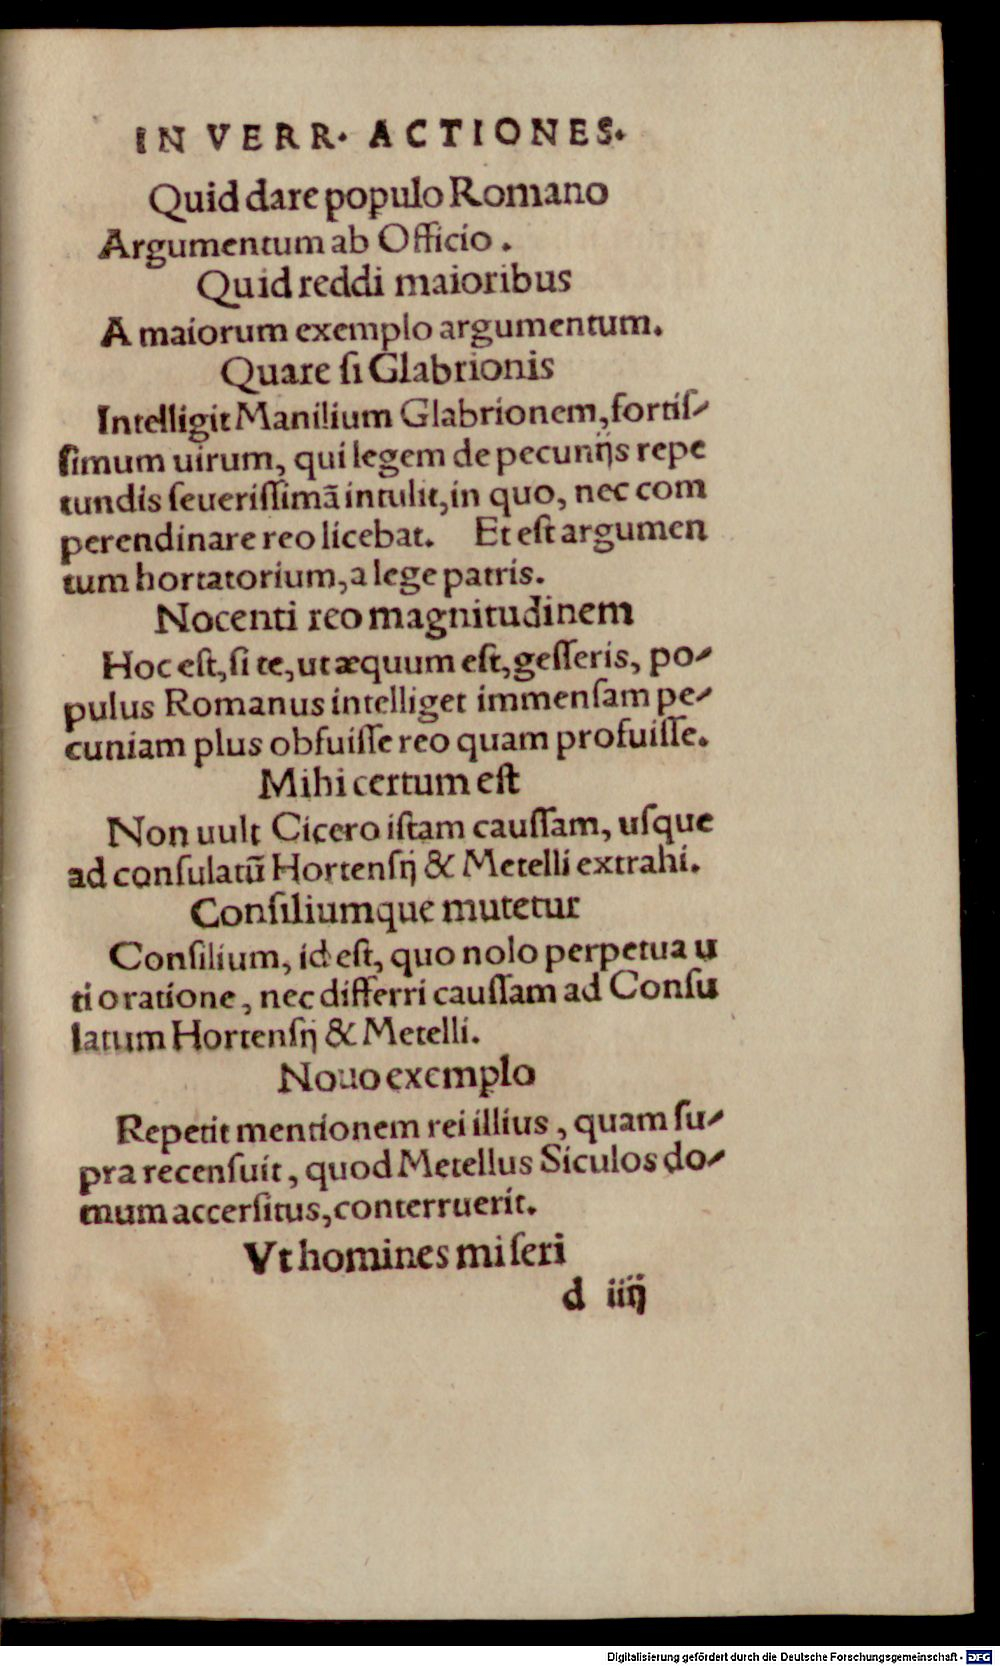 IN VERR. ACTIONES.
Quid dare populo Romano
Argumentum ab Officio.
Quid reddi maioribus
A maiorum exemplo argumentum.
Quare ſi Glabrionis
Intelligit Manilium Glabrionem, fortiſ-
ſimum uirum, qui legem de pecunijs repe
tundis ſeueriſſimā intulit, in quo, nec com
perendinare reo licebat. Et eſt argumen
tum hortatorium, a lege patris.
Nocenti reo magnitudinem
Hoc eſt, ſi te, ut æquum eſt, geſſeris, po-
pulus Romanus intelliget immenſam pe-
cuniam plus obfuiſſe reo quam profuiſſe.
Mihi certum eſt
Non uult Cicero iſtam cauſſam, uſque
ad conſulatū Hortenſij & Metelli extrahi.
Conſiliumque mutetur
Conſilium, id eſt, quo nolo perpetua u
ti oratione, nec differri cauſſam ad Conſu
latum Hortenſij & Metelli.
Nouo exemplo
Repetit mentionem rei illius, quam ſu-
pra recenſuit, quod Metellus Siculos do-
mum accerſitus, conterruerit.
Vt homines miſeri
d iiij
Digitalisierung gefördert durch die Deutsche Forschungsgemeinschaft - DFG